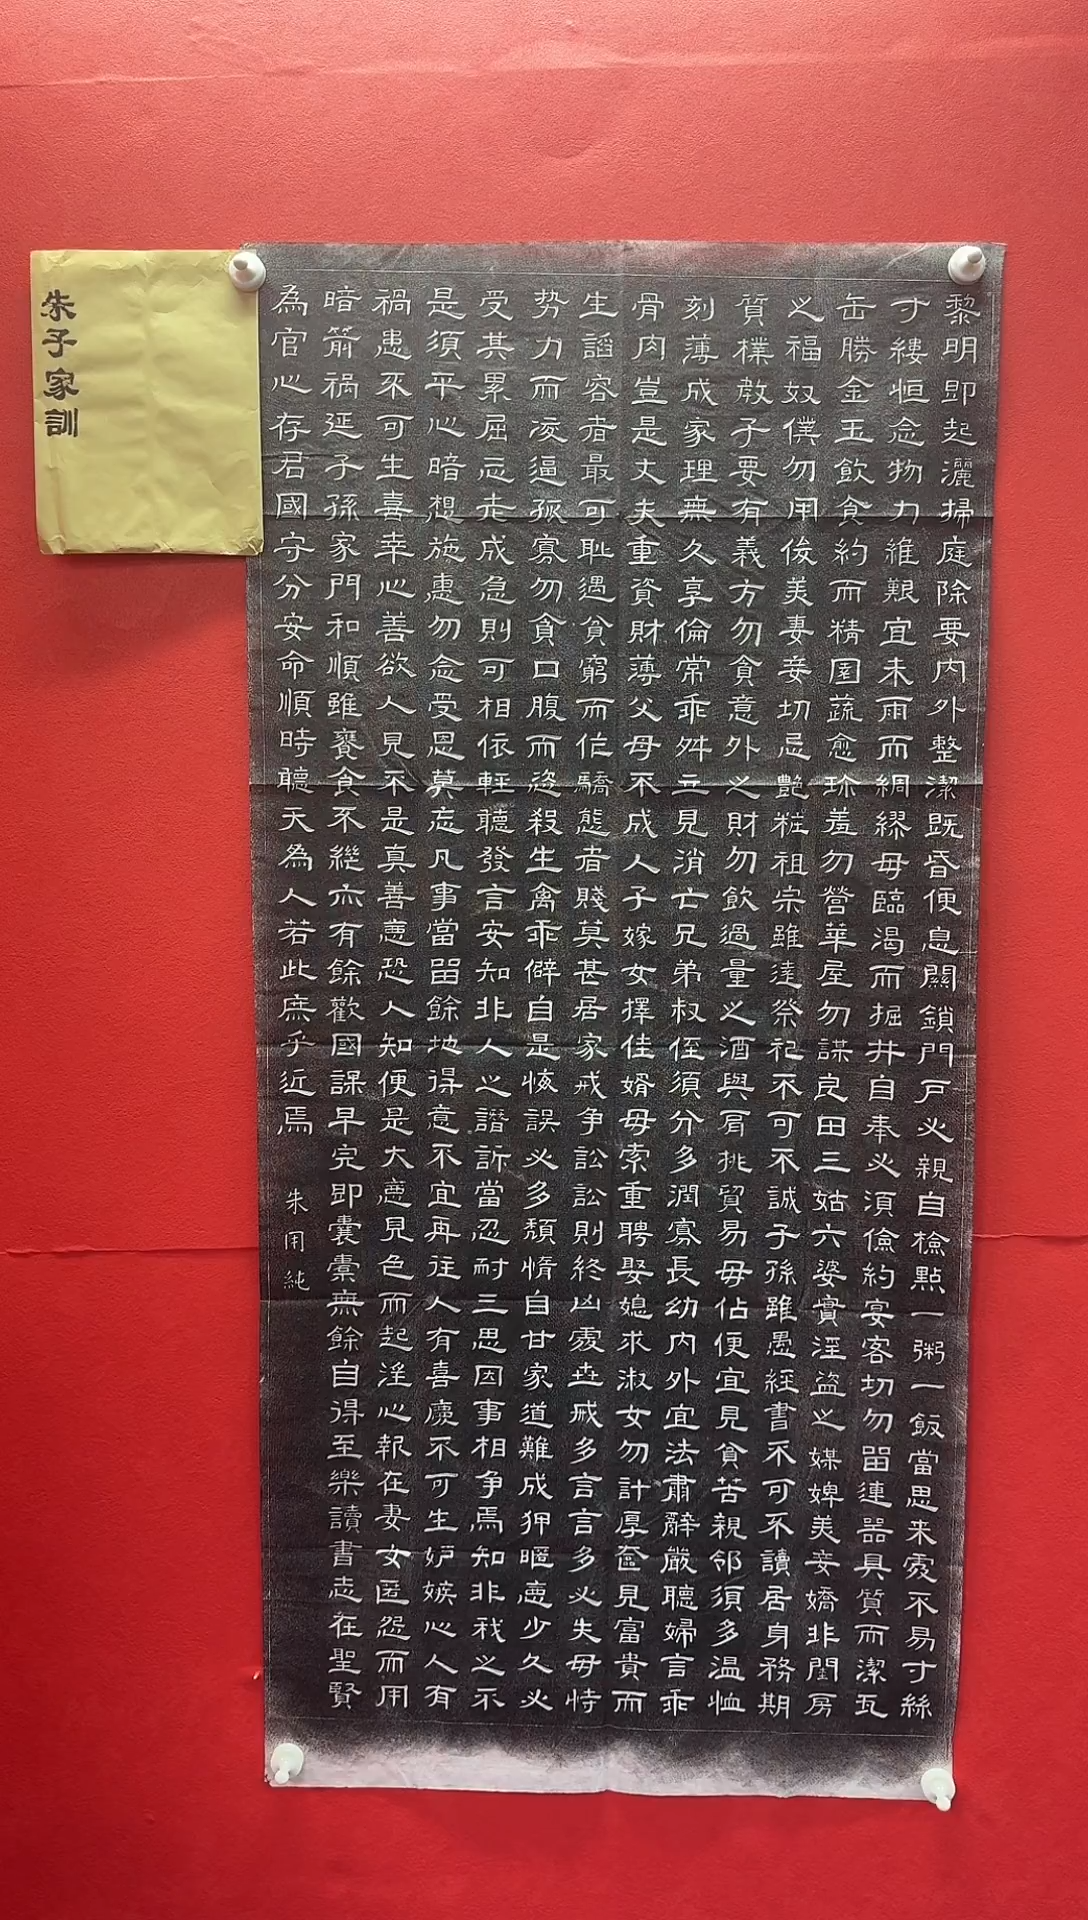 朱子家訓
黎明即起灑掃庭除要內外整潔既昏便息關鎖門戶必親自檢點一粥一飯當思来處不易寸絲
寸縷恒念物力維艱宜未雨而綢繆毋臨渴而掘井自奉必須儉約宴客切勿留連器具質而潔瓦
缶勝金玉飲食約而精園蔬愈珍羞勿營華屋勿謀良田三姑六婆實淫盜之媒婢美妾嬌非閨房
之福奴僕勿用俊美妻妾切忌艷粧祖宗雖遠祭祀不可不誠子孫雖愚經書不可不讀居身務期
質樸教子要有義方勿貪意外之財勿飲過量之酒與肩挑貿易毋佔便宜見貧苦親邻須多温恤
刻薄成家理無久享倫常乖舛立見消亡兄弟叔侄須分多潤寡長幼內外宜法肅辭嚴聽婦言乖
骨肉豈是丈夫重資財薄父母不成人子嫁女擇佳婿毋索重聘娶媳求淑女勿計厚奩見富貴而
生諂容者最可恥遇貧窮而作驕態者賤莫甚居家戒争訟訟則終凶處世戒多言言多必失毋恃
势力而凌逼孤寡勿貪口腹而恣殺生禽乖僻自是悔誤必多頹惰自甘家道難成狎暱惡少久必
受其累屈志老成急則可相依輕聽發言安知非人之譖訴當忍耐三思因事相争焉知非我之不
是須平心暗想施惠勿念受恩莫忘凡事當留餘地得意不宜再往人有喜慶不可生妒嫉心人有
禍患不可生喜幸心善欲人見不是真善惡恐人知便是大惡見色而起淫心報在妻女匿怨而用
暗箭禍延子孫家門和順雖饔食不繼亦有餘歡國課早完即囊橐無餘自得至樂讀書志在聖賢
為官心存君國守分安命順時聽天為人若此庶乎近焉
朱用純